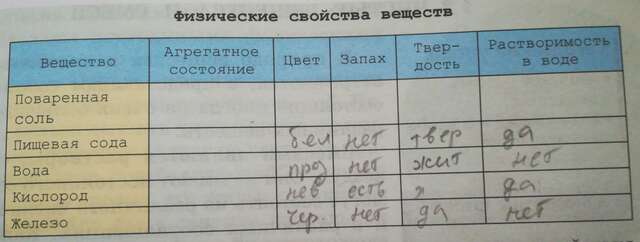 Физические свойства веществ
Вещество Агрегатное состояние Цвет Запах Твер-дость Растворимость в воде
Поваренная соль
Пищевая сода бел нет твер да
Вода проз нет жит нет
Кислород нев есть да
Железо чер. нет да нет